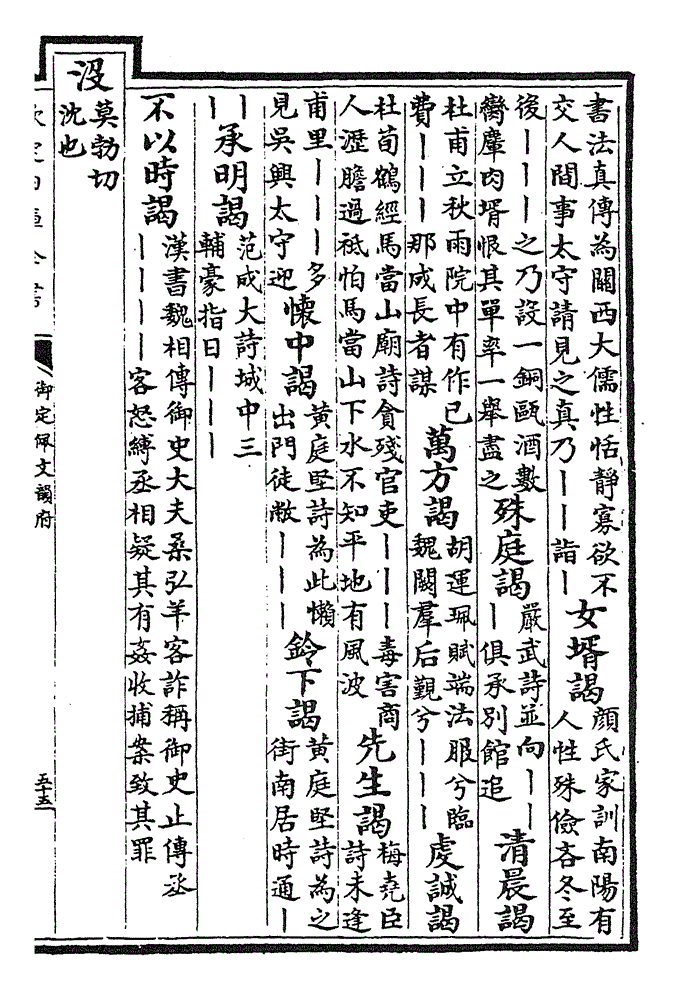 書法真傳為關西大儒性恬靜寡欲不
交人間事太守請見之真乃丨丨詣丨
女壻謁
顏氏家訓南陽有
人性殊儉吝冬至
後丨丨丨之乃設一銅甌酒數
臠麞肉壻恨其單率一舉盡之
殊庭謁
嚴武詩並向丨丨
丨俱承別館追
清晨謁
杜甫立秋雨院中有作已
費丨丨丨那成長者謀
萬方謁
胡運珮賦端法服兮臨
魏闕羣后覲兮丨丨丨
虔誠謁
杜荀鶴經馬當山廟詩貪殘官吏丨丨丨毒害商
人瀝膽過祗怕馬當山下水不知平地有風波
先生謁
梅堯臣
詩未逢
甫里丨丨丨多
見吳興太守迎
懷中謁
黃庭堅詩為此懶
出門徒敝丨丨丨
鈴下謁
黃庭堅詩為之
街南居時通丨
丨
丨
承明謁
范成大詩城中三
輔豪指日丨丨丨
不以時謁
漢書魏相傳御史大夫桑弘羊客詐稱御史止傳丞
丨丨丨丨客怒縛丞相疑其有姦收捕案致其罪
没
莫勃切
沈也
欽定四庫全書
御定佩文韻府
五十五